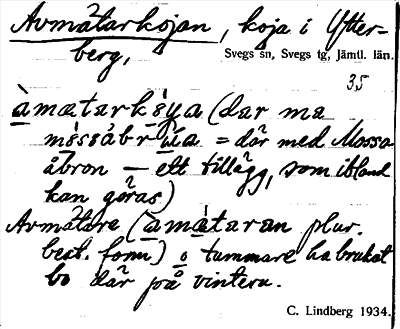 Avmätarkojan, koja i Ytter-
berg,
Svegs sn, Svegs tg, Jämtl. län.
35
àmætarkö̀ya (dar ma
mössåbrùa = där med Mossa
åbron — ett tillägg, som ibland
kan göras)
Avmätare (amætaran plur.
best. form) o tummare ha brukat
bo där på vintern.
C. Lindberg 1934.